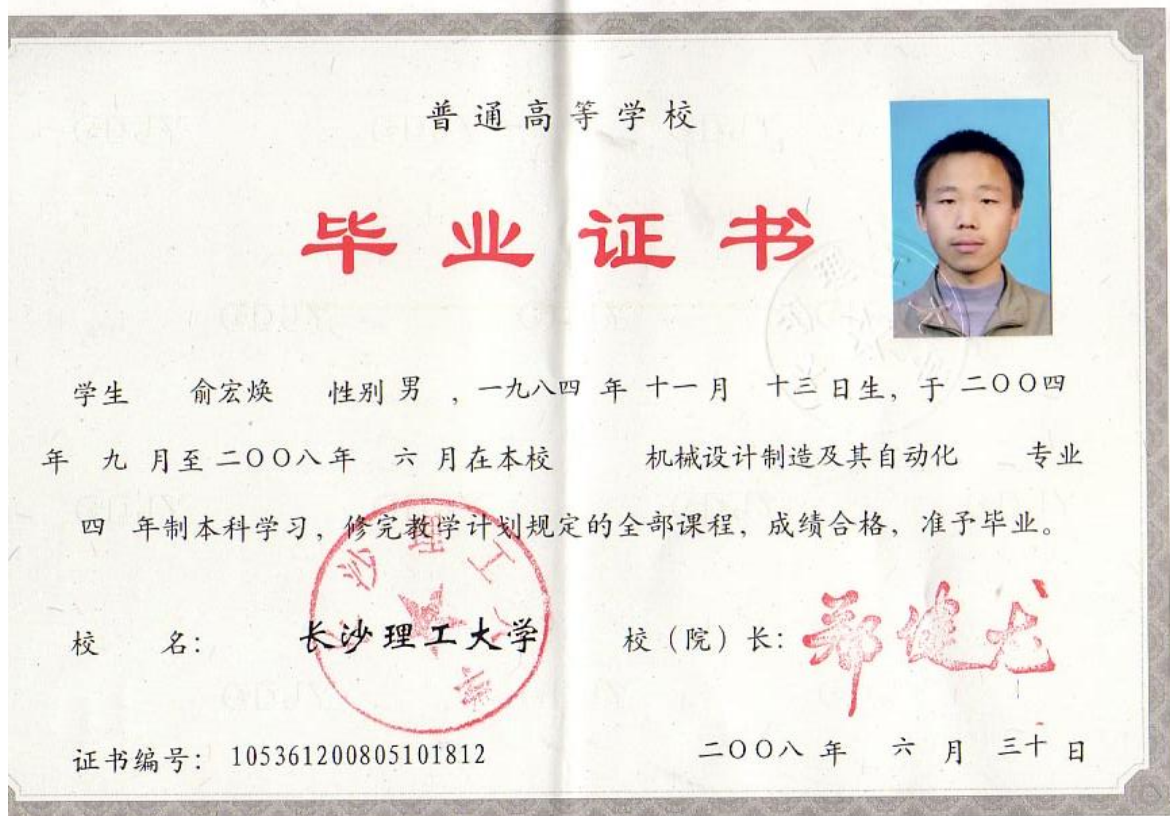 普通高等学校
毕业证书
学生 俞宏焕 性别 男 ，一九八四 年 十一 月 十三 日生，于 二〇〇四
年 九 月至 二〇〇八 年 六 月在本校 机械设计制造及其自动化 专业
四 年制本科学习，修完教学计划规定的全部课程，成绩合格，准予毕业。
校 名： 长沙理工大学 校（院）长：郑健龙
证书编号：105361200805101812 二〇〇八 年 六 月 三十 日